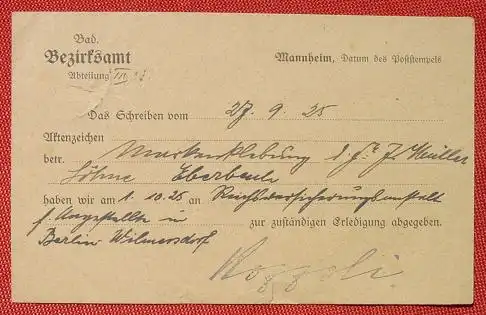 Bad.
Bezirksamt
Abteilung III
Mannheim, Datum des Poststempels
Das Schreiben vom 27. 9. 25
Aktenzeichen
betr. Markenklebung d. Fa. J. Müller
Söhne Eberbach
haben wir am 1. 10. 25 an Reichsversicherungsanstalt
f. Angestellte in zur zuständigen Erledigung abgegeben.
Berlin Wilmersdorf